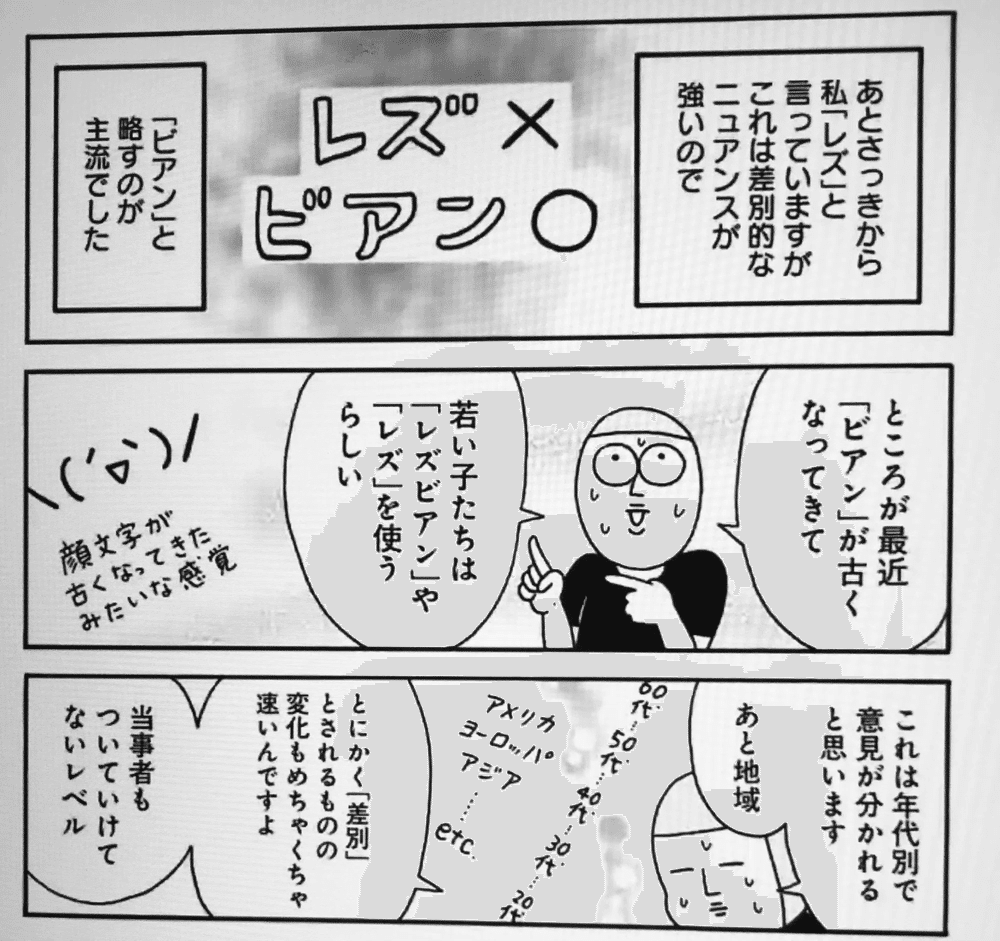 あとさっきから
私「レズ」と
言っていますが
これは差別的な
ニュアンスが
強いので
レズ×
ビアン○
「ビアン」と
略すのが
主流でした
ところが最近
「ビアン」が古く
なってきて
若い子たちは
「レズビアン」や
「レズ」を使う
らしい
\('▽')/
顔文字が
古くなってきた
みたいな感覚
これは年代別で
意見が分かれる
と思います
あと地域
60代…50代…40代…30代…20代
アメリカ
ヨーロッパ
アジア
……
etc.
とにかく「差別」
とされるものの
変化もめちゃくちゃ
速いんですよ
当事者も
ついていけて
ないレベル